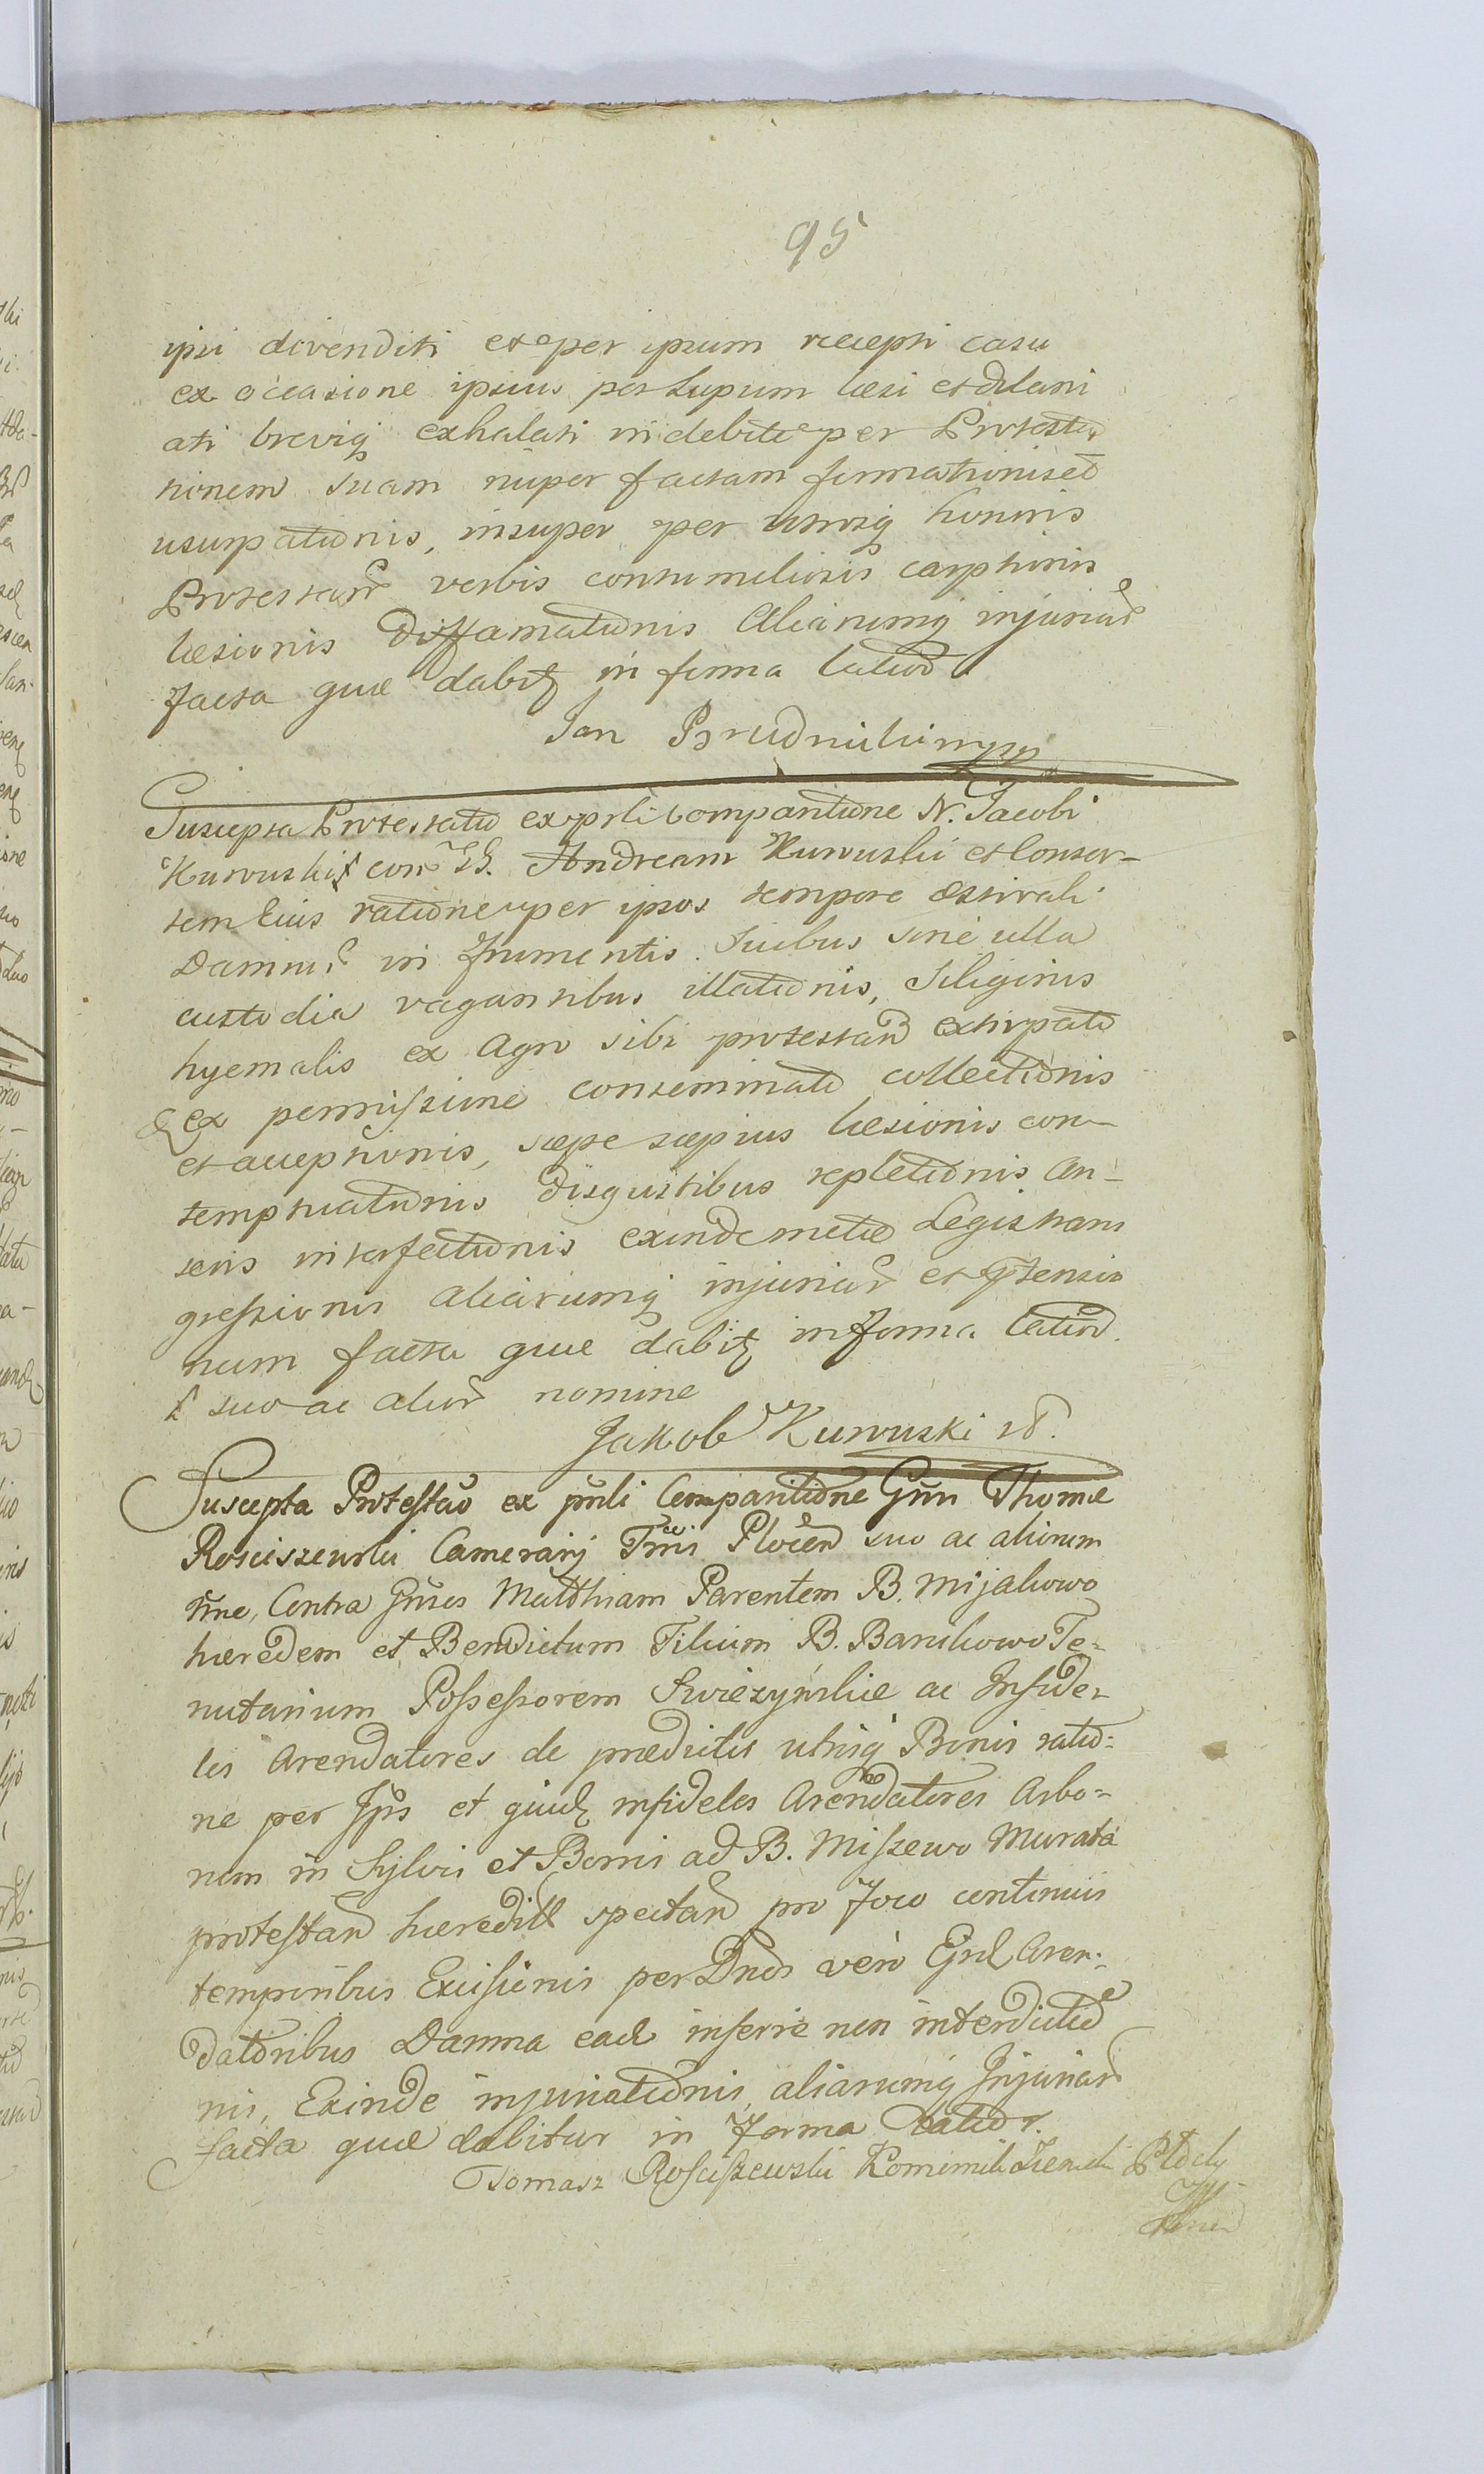 95
ipsi divenditi et per ipsum recepti casu
ex occasione ipsius per Lupum læsi et dilani
ati brevig exhalati indebite per Protestati
tionem suam nuper factam firmationis et
usurpationis, insuper per utrosq honoris
Protestan verbis contumeliosis carptionis
læsionis Diffamationis Aliarumq injuriar
facta quæ dabit in forma latior
Jan Brudnicki mpp
Suscepta Protestatio ex prli Comparitione N. Jacobi
Kurowski con G. Andream Kurowski et Consor-
tem Eius ratione per ipsos tempore æstivali
Damnor in frumentis Suibus sine ulla
custodia vagantibus illationis, Siliginis
hyemalis ex Agro sibi protestan extirpatio
& ex permissione conseminatio collectionis
et acceptionis, sæpe sæpius læsionis con-
temptuationis disgustibus repletionis An-
seris interfectionis exinde metæ Legis trans
gressionis aliarumq injuriar et prtensio
num facta quæ dabit in forma latior.
suo ac alior nomine
Jakob Kurowski
Suscepta Protestao ex pnli Comparitione Gnsi Thomæ
Rosciszewski Camerarij Trris Plocen suo ac aliorum
nne, Contra Gnsos Matthiam Parentem B. Mijakowo
hæredem et Benedictum Filium B. Barukowo Te-
nutarium Possessorem Swiezynskie ac Infide-
les Arendatores de prædictis utrisq Bonis ratio-
ne per Ipos et quid infideles Arendatores Arbo-
rum in Sylvis et Borris ad B. Miszewo Murata
protestan hæreditl spectan pro foco continuis
temporibus Excisionis per Dnos vero Eosd Aren-
datoribus Damna ead inferre non interdictio
nis, Exinde injuriationis, aliarumq Injuriar
facta quæ dabitur in forma latior.
Tomasz Rosciszewski Komornik Ziemski Płocki